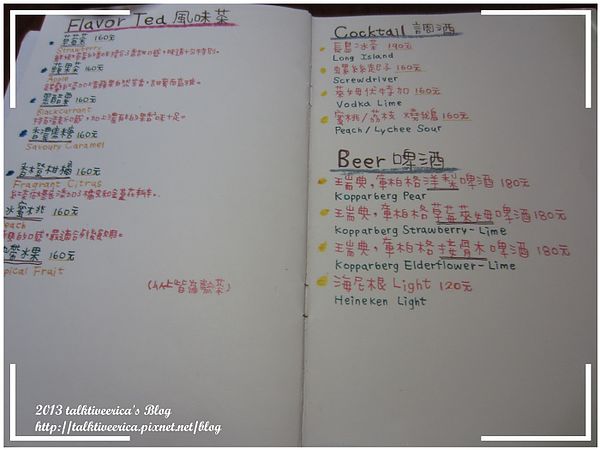 Flavor Tea 風味茶
草莓茶 160元
Strawberry
蘋果茶 160元
Apple
黑醋栗 160元
Blackcurrant
香濃焦糖 160元
Savoury Caramel
香橙柑橘 160元
Fragrant Citrus
水蜜桃 160元
each
帶水果 160元
pical Fruit
(以上皆為熱茶)
Cocktail 調酒
長島冰茶 190元
Long Island
螺絲起子 160元
Screwdriver
萊姆伏特加 160元
Vodka Lime
蜜桃/荔枝 160元
Peach/Lychee Sour
Beer 啤酒
瑞典,軍柏格洋梨啤酒 180元
Kopparberg Pear
瑞典,軍柏格草莓萊姆啤酒 180元
Kopparberg Strawberry-Lime
瑞典,軍柏格接骨木啤酒 180元
Kopparberg Elderflower-Lime
海尼根 Light 120元
Heineken Light
2013 talktiveerica's Blog
http://talktiveerica.pixnet.net/blog